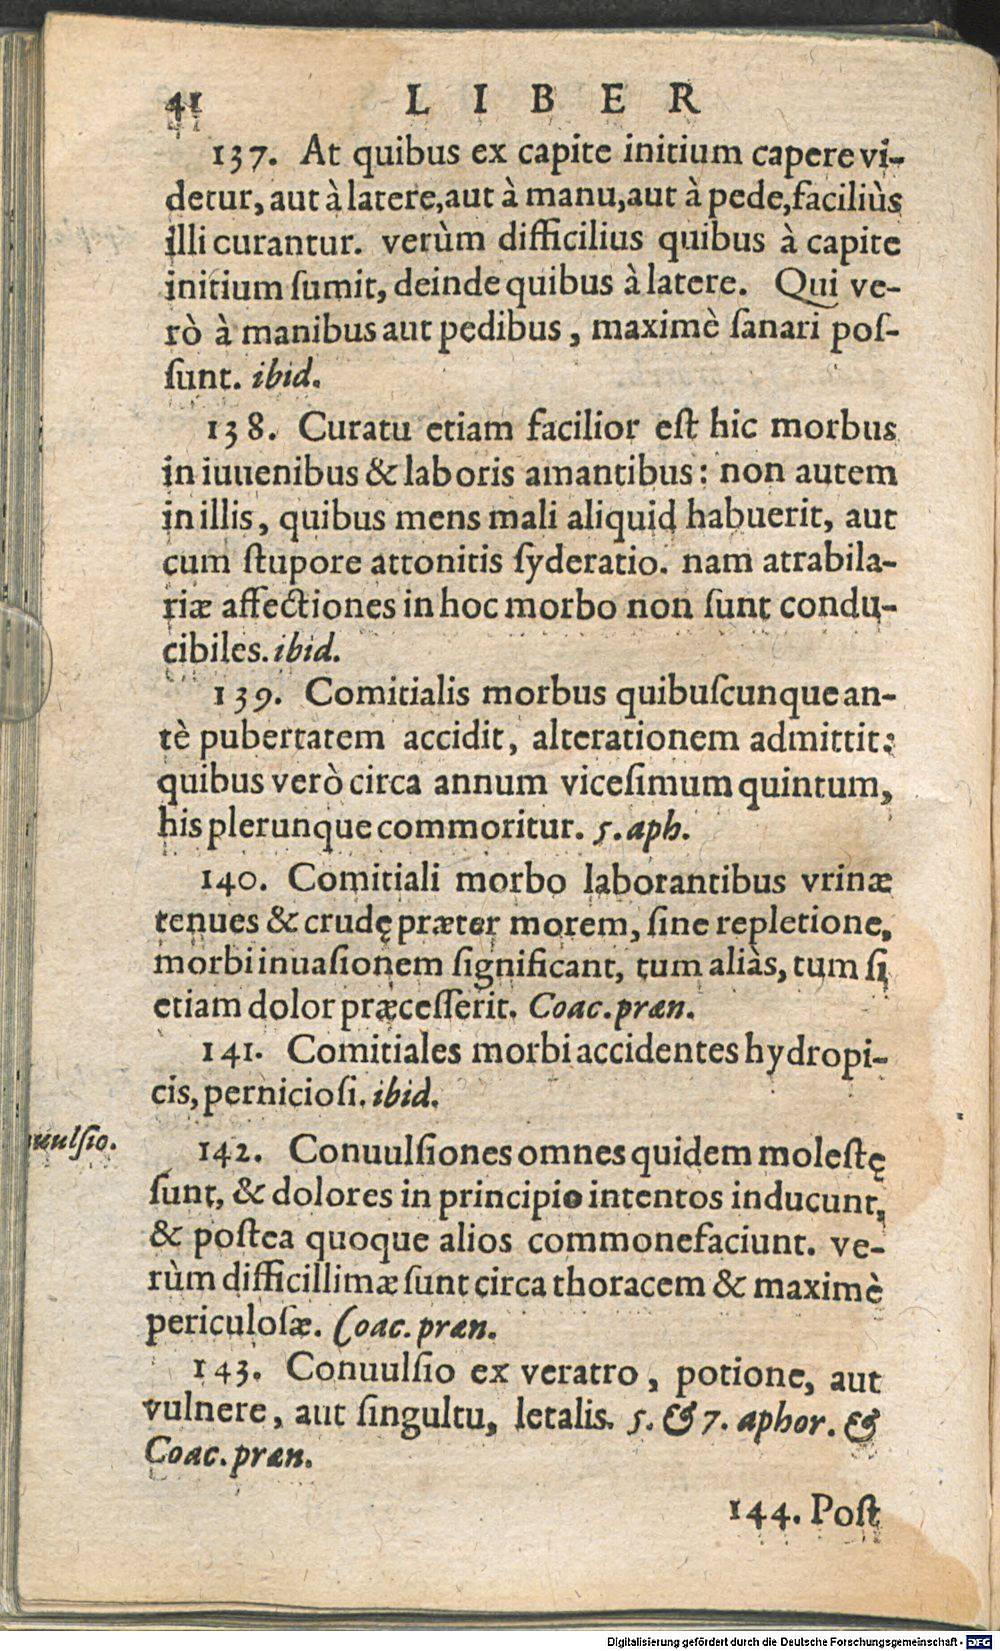 41 LIBER
137. At quibus ex capite initium capere vi-
detur, aut à latere, aut à manu, aut à pede, faciliùs
illi curantur. verùm difficilius quibus à capite
initium ſumit, deinde quibus à latere. Qui ve-
rò à manibus aut pedibus, maximè ſanari poſ-
ſunt. ibid.
138. Curatu etiam facilior eſt hic morbus
in iuuenibus & laboris amantibus: non autem
in illis, quibus mens mali aliquid habuerit, aut
cum ſtupore attonitis ſyderatio. nam atrabila-
riæ affectiones in hoc morbo non ſunt condu-
cibiles. ibid.
139. Comitialis morbus quibuſcunque an-
tè pubertatem accidit, alterationem admittit:
quibus verò circa annum viceſimum quintum,
his plerunque commoritur. 5. aph.
140. Comitiali morbo laborantibus vrinæ
tenues & crudę præter morem, ſine repletione,
morbi inuaſionem ſignificant, tum aliàs, tum ſi
etiam dolor præceſſerit. Coac. præn.
141. Comitiales morbi accidentes hydropi-
cis, pernicioſi. ibid.
uulſio.
142. Conuulſiones omnes quidem moleſtę
ſunt, & dolores in principio intentos inducunt,
& poſtea quoque alios commonefaciunt. ve-
rùm difficillimæ ſunt circa thoracem & maximè
periculoſæ. Coac. præn.
143. Conuulſio ex veratro, potione, aut
vulnere, aut ſingultu, letalis. 5. & 7. aphor. &
Coac. præn.
144. Poſt
Digitalisierung gefördert durch die Deutsche Forschungsgemeinschaft - DFG